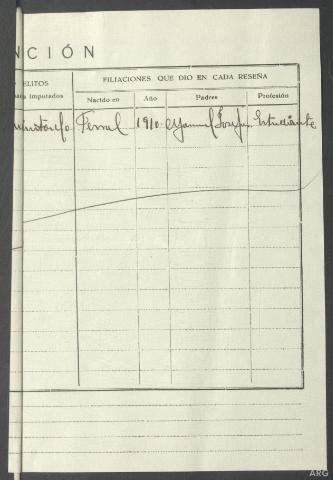 NCIÓN
ELITOS
imputados
FILIACIONES QUE DIO EN CADA RESEÑA
Nacido en
Año
Padres
Profesión
Ferrol 1910 Manuel Josefa Estudiante
ARG